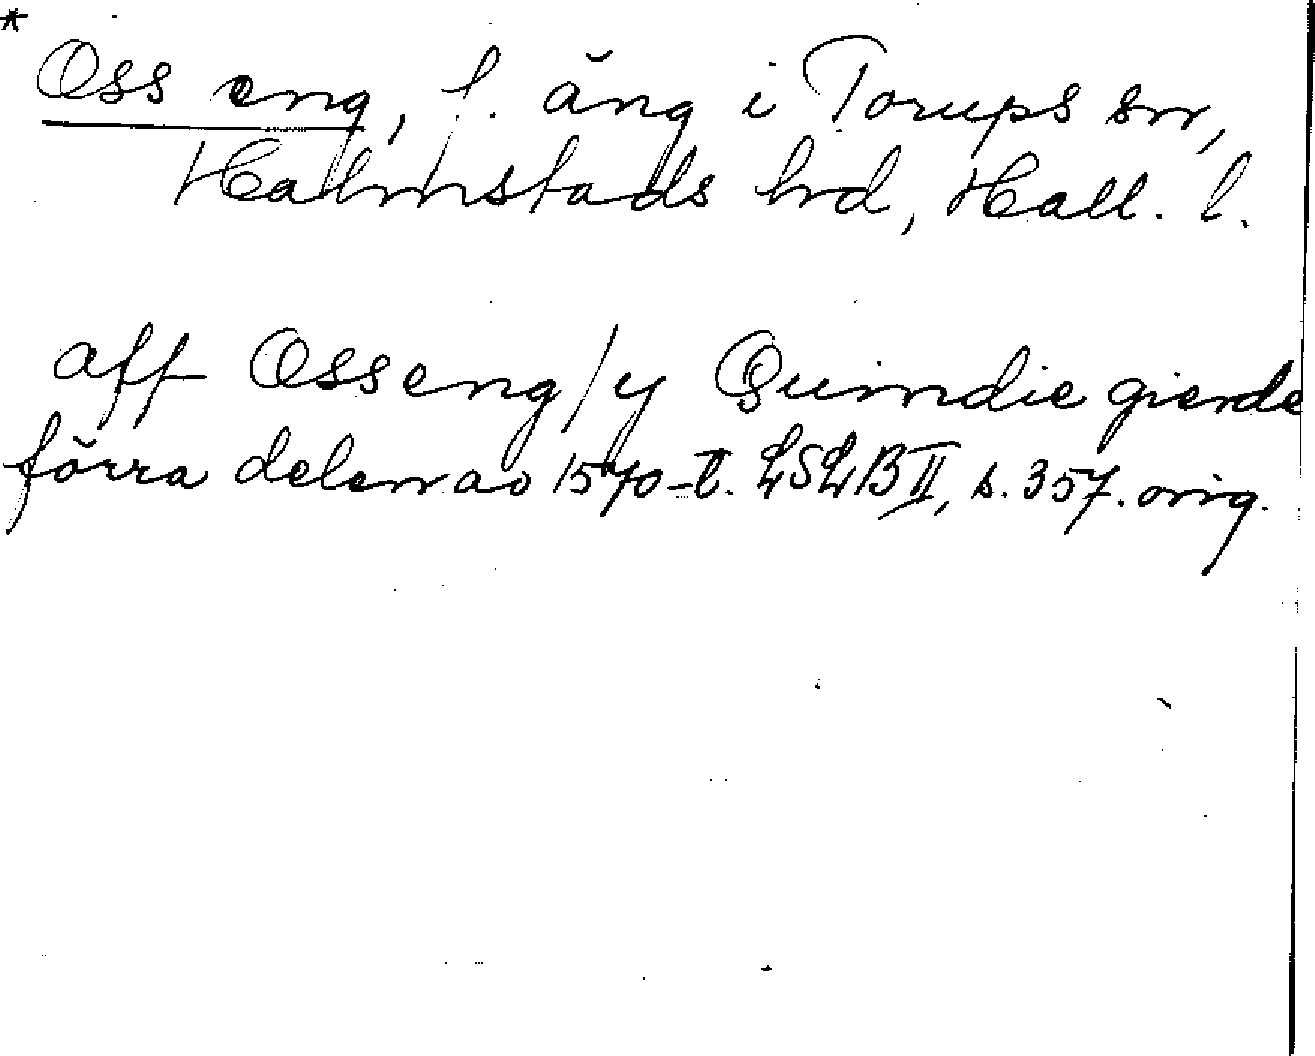 *
Oss eng, f. äng i Torups sn,
Halmstads hrd, Hall. l.
aff Osseng / y Quindie gierde
förra delen av 1570-t. LSLB II, s. 357. orig.